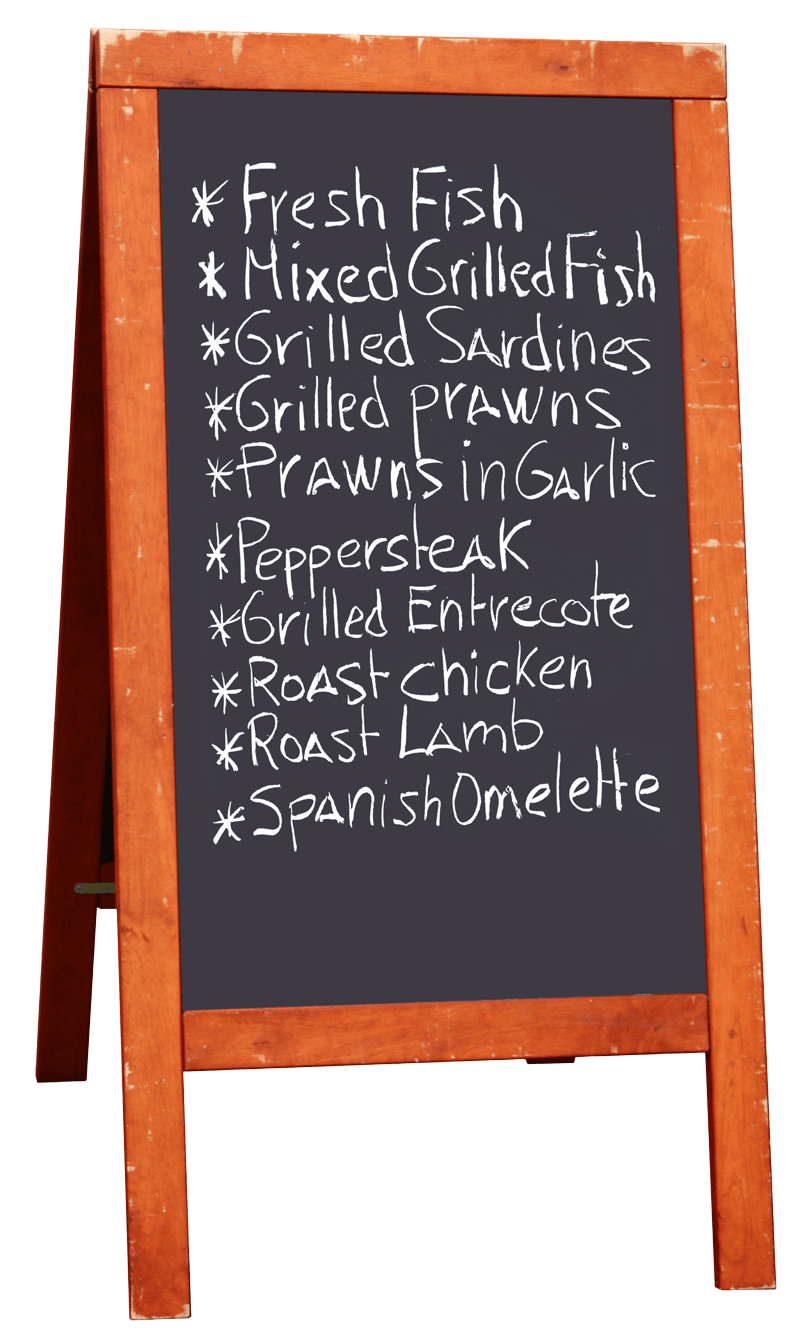 * Fresh Fish
* Mixed Grilled Fish
* Grilled Sardines
* Grilled prawns
* Prawns in Garlic
* Peppersteak
* Grilled Entrecote
* Roast chicken
* Roast Lamb
* Spanish Omelette